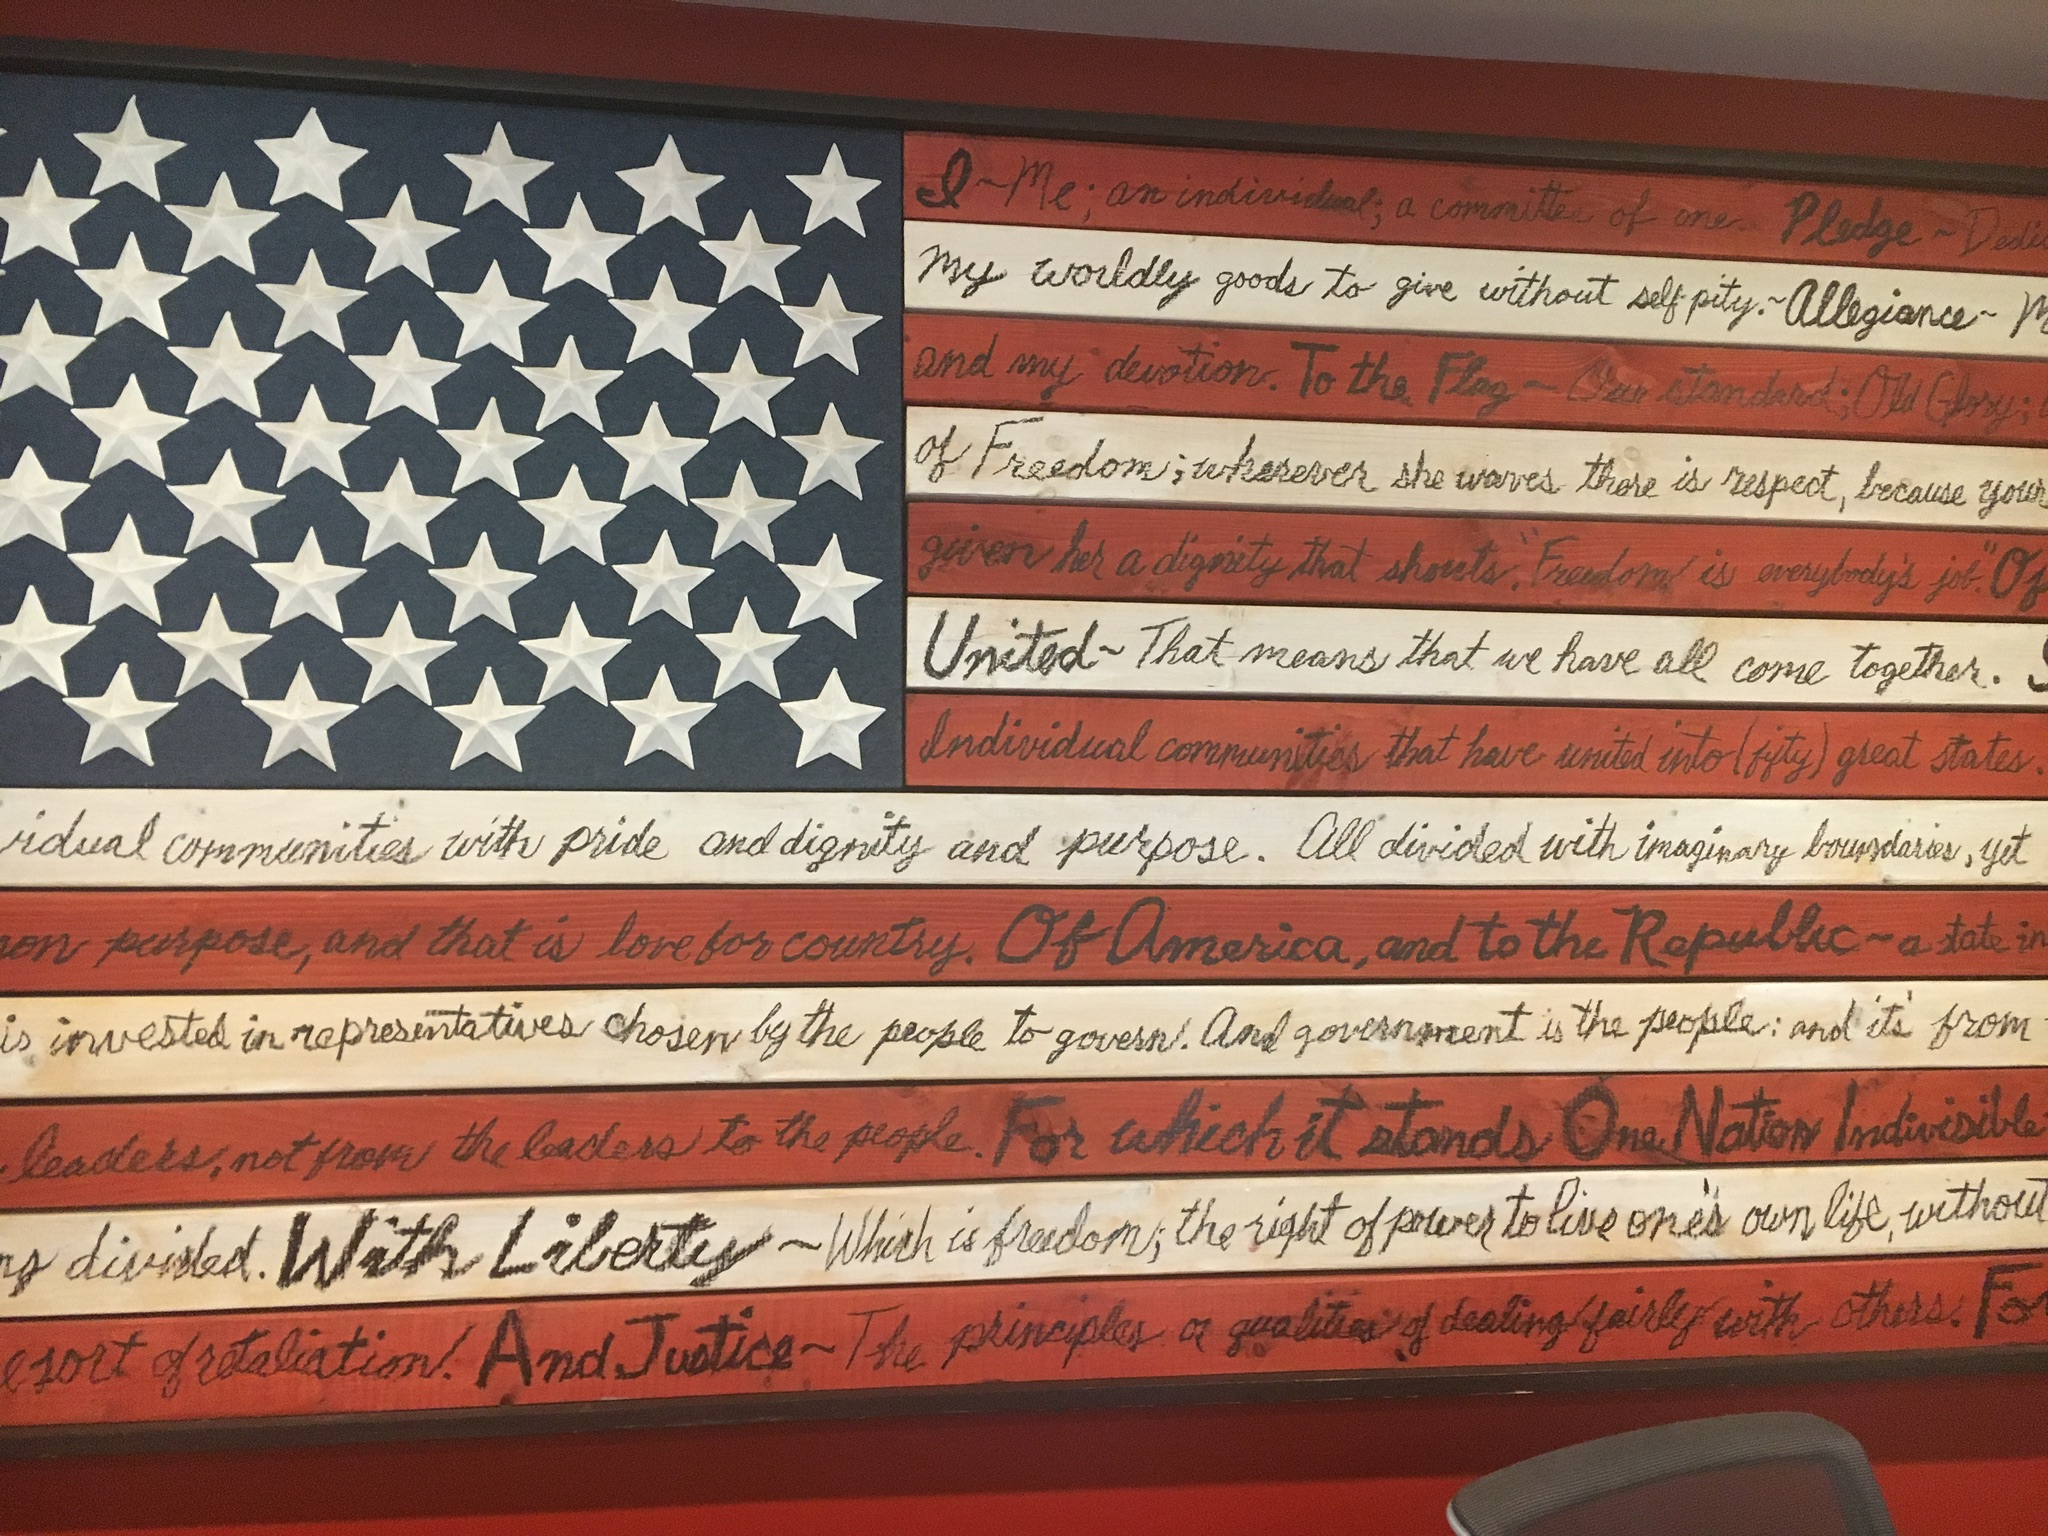 I ~ Me; an individual; a committee of one. Pledge ~ Dedic
My worldly goods to give without self pity. ~ Allegiance ~ M
and my devotion. To the Flag ~ Our standard; Old Glory;
of Freedom; wherever she waves there is respect, because your
given her a dignity that shouts, "Freedom is everybody's job." Of
United ~ That means that we have all come together. S
Individual communities that have united into (fifty) great states.
vidual communities with pride and dignity and purpose. All divided with imaginary boundaries, yet
mon purpose, and that is love for country. Of America, and to the Republic ~ a state in
is invested in representatives chosen by the people to govern. And government is the people: and it's from
leaders, not from the leaders to the people. For which it stands One Nation Indivisible
ng divided. With Liberty ~ Which is freedom; the right of power to live one's own life, without
esort of retaliation. And Justice ~ The principles or qualities of dealing fairly with others. For